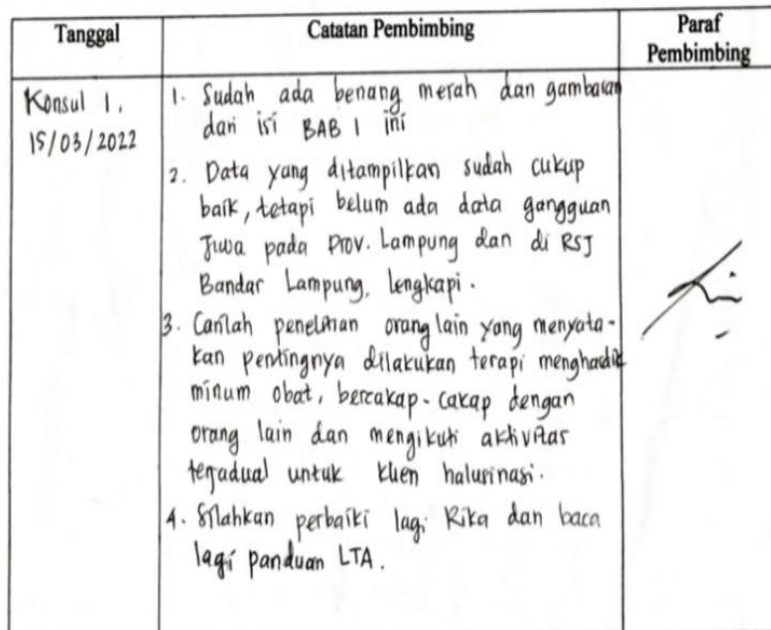 Tanggal
Catatan Pembimbing
Paraf
Pembimbing
Konsul 1.
15/03/2022
1. Sudah ada benang merah dan gambaran
dari isi BAB 1 ini
2. Data yang ditampilkan sudah cukup
baik, tetapi belum ada data gangguan
Jiwa pada Prov. Lampung dan di RSJ
Bandar Lampung, lengkapi.
3. Carilah penelitian orang lain yang menyata-
kan pentingnya dilakukan terapi menghardik
minum obat, bercakap-cakap dengan
orang lain dan mengikuti aktivitas
terjadual untuk klien halusinasi.
4. Silahkan perbaiki lagi Rika dan baca
lagi panduan LTA.